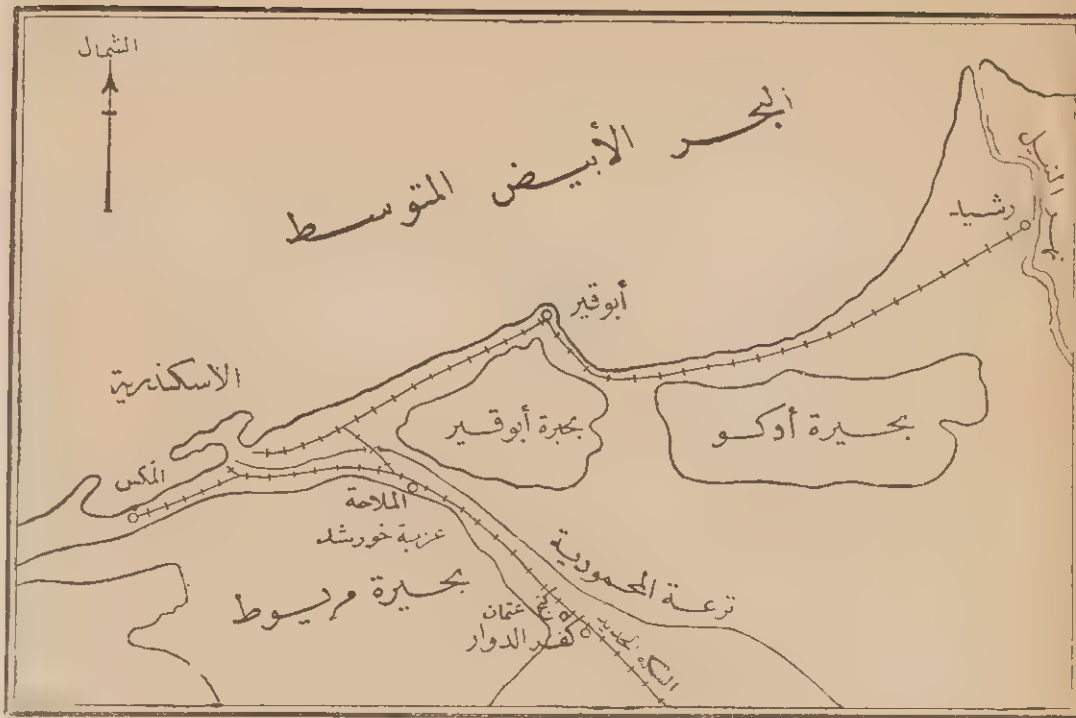 الشمال
البحر الأبيض المتوسط
نهر النيل
رشيد
أبوقير
الاسكندرية
بحيرة أبوقير
بحيرة أدكو
المكس
الملاحة
عزبة خورشد
ترعة المحمودية
بحيرة مريوط
عثمان
كفر الدوار
السكة الحديد